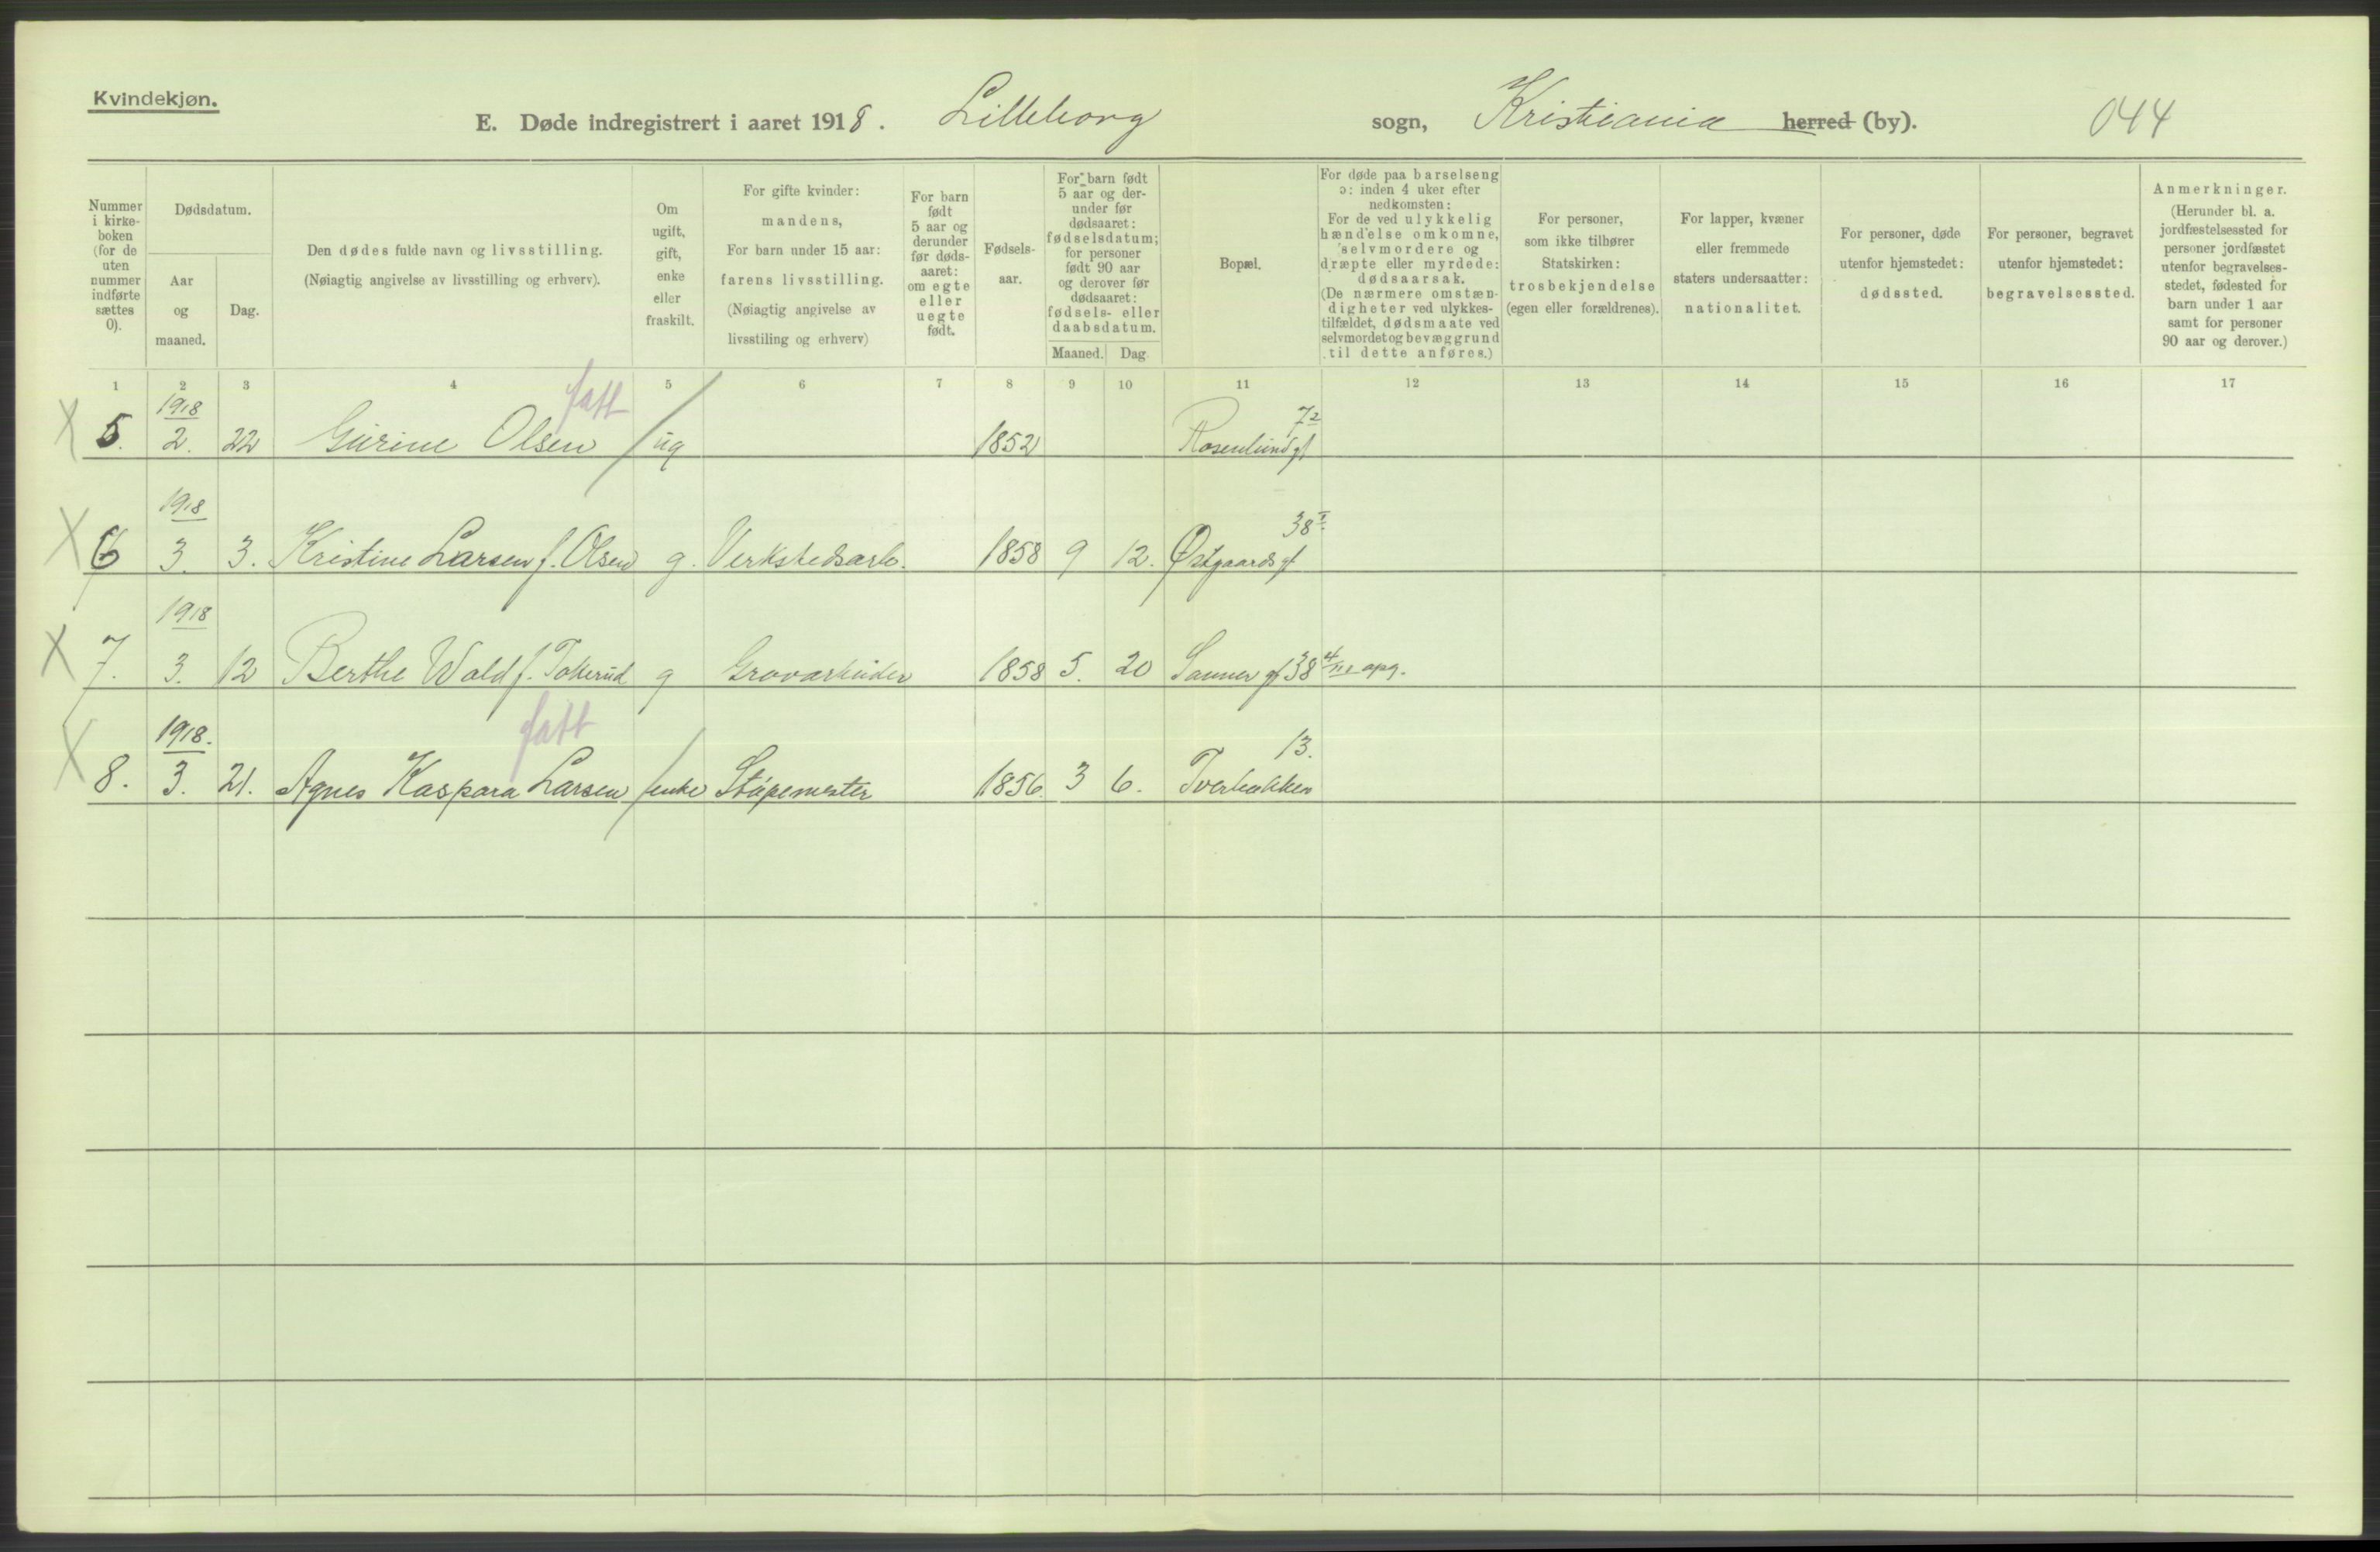 Kvindekjøn.
E. Døde indregistrert i aaret 1918. Lilleborg sogn, Kristiania herred (by). 044
Nummer i kirke-boken (for de uten nummer indførte sættes 0).
Dødsdatum.
Aar og maaned.
Dag.
Den dødes fulde navn og livsstilling.
(Nøiagtig angivelse av livsstilling og erhverv).
Om ugift, gift, enke eller fraskilt.
For gifte kvinder: mandens,
For barn under 15 aar: farens livsstilling.
(Nøiagtig angivelse av livsstiling og erhverv)
For barn født 5 aar og derunder før døds-aaret: om egte eller uegte født.
Fødsels-aar.
For barn født 5 aar og der-under før dødsaaret: fødselsdatum; for personer født 90 aar og derover før dødsaaret: fødsels- eller daabsdatum.
Maaned. Dag.
Bopæl.
For døde paa barselseng ɔ: inden 4 uker efter nedkomsten:
For de ved ulykkelig hændelse omkomne, selvmordere og dræpte eller myrdede: dødsaarsak.
(De nærmere omstæn-digheter ved ulykkes-tilfældet, dødsmaate ved selvmordet og bevæggrund til dette anføres.)
For personer, som ikke tilhører Statskirken: trosbekjendelse (egen eller forældrenes).
For lapper, kvæner eller fremmede staters undersaatter: nationalitet.
For personer, døde utenfor hjemstedet: dødssted.
For personer, begravet utenfor hjemstedet: begravelsessted.
Anmerkninger.
(Herunder bl. a. jordfæstelsessted for personer jordfæstet utenfor begravelses-stedet, fødested for barn under 1 aar samt for personer 90 aar og derover.)
1 2 3 4 5 6 7 8 9 10 11 12 13 14 15 16 17
X 5. 1918 2. 22 Gurine Olsen fatt ug 1852 Rosenlundgt 72
X 6 1918 3. 3. Kristine Larsen f. Olsen g. Verkstedsarb. 1858 9 12. Østgaardsgt 38 I
X 7. 1918 3. 12 Berthe Wold f. Tokerud g Grovarbeider 1858 5. 20 Sannergt 38 4/III opg.
X 8. 1918. 3. 21. Agnes Kaspara Larsen fatt enke Støpemester 1856. 3 6. Tverbakken 13.